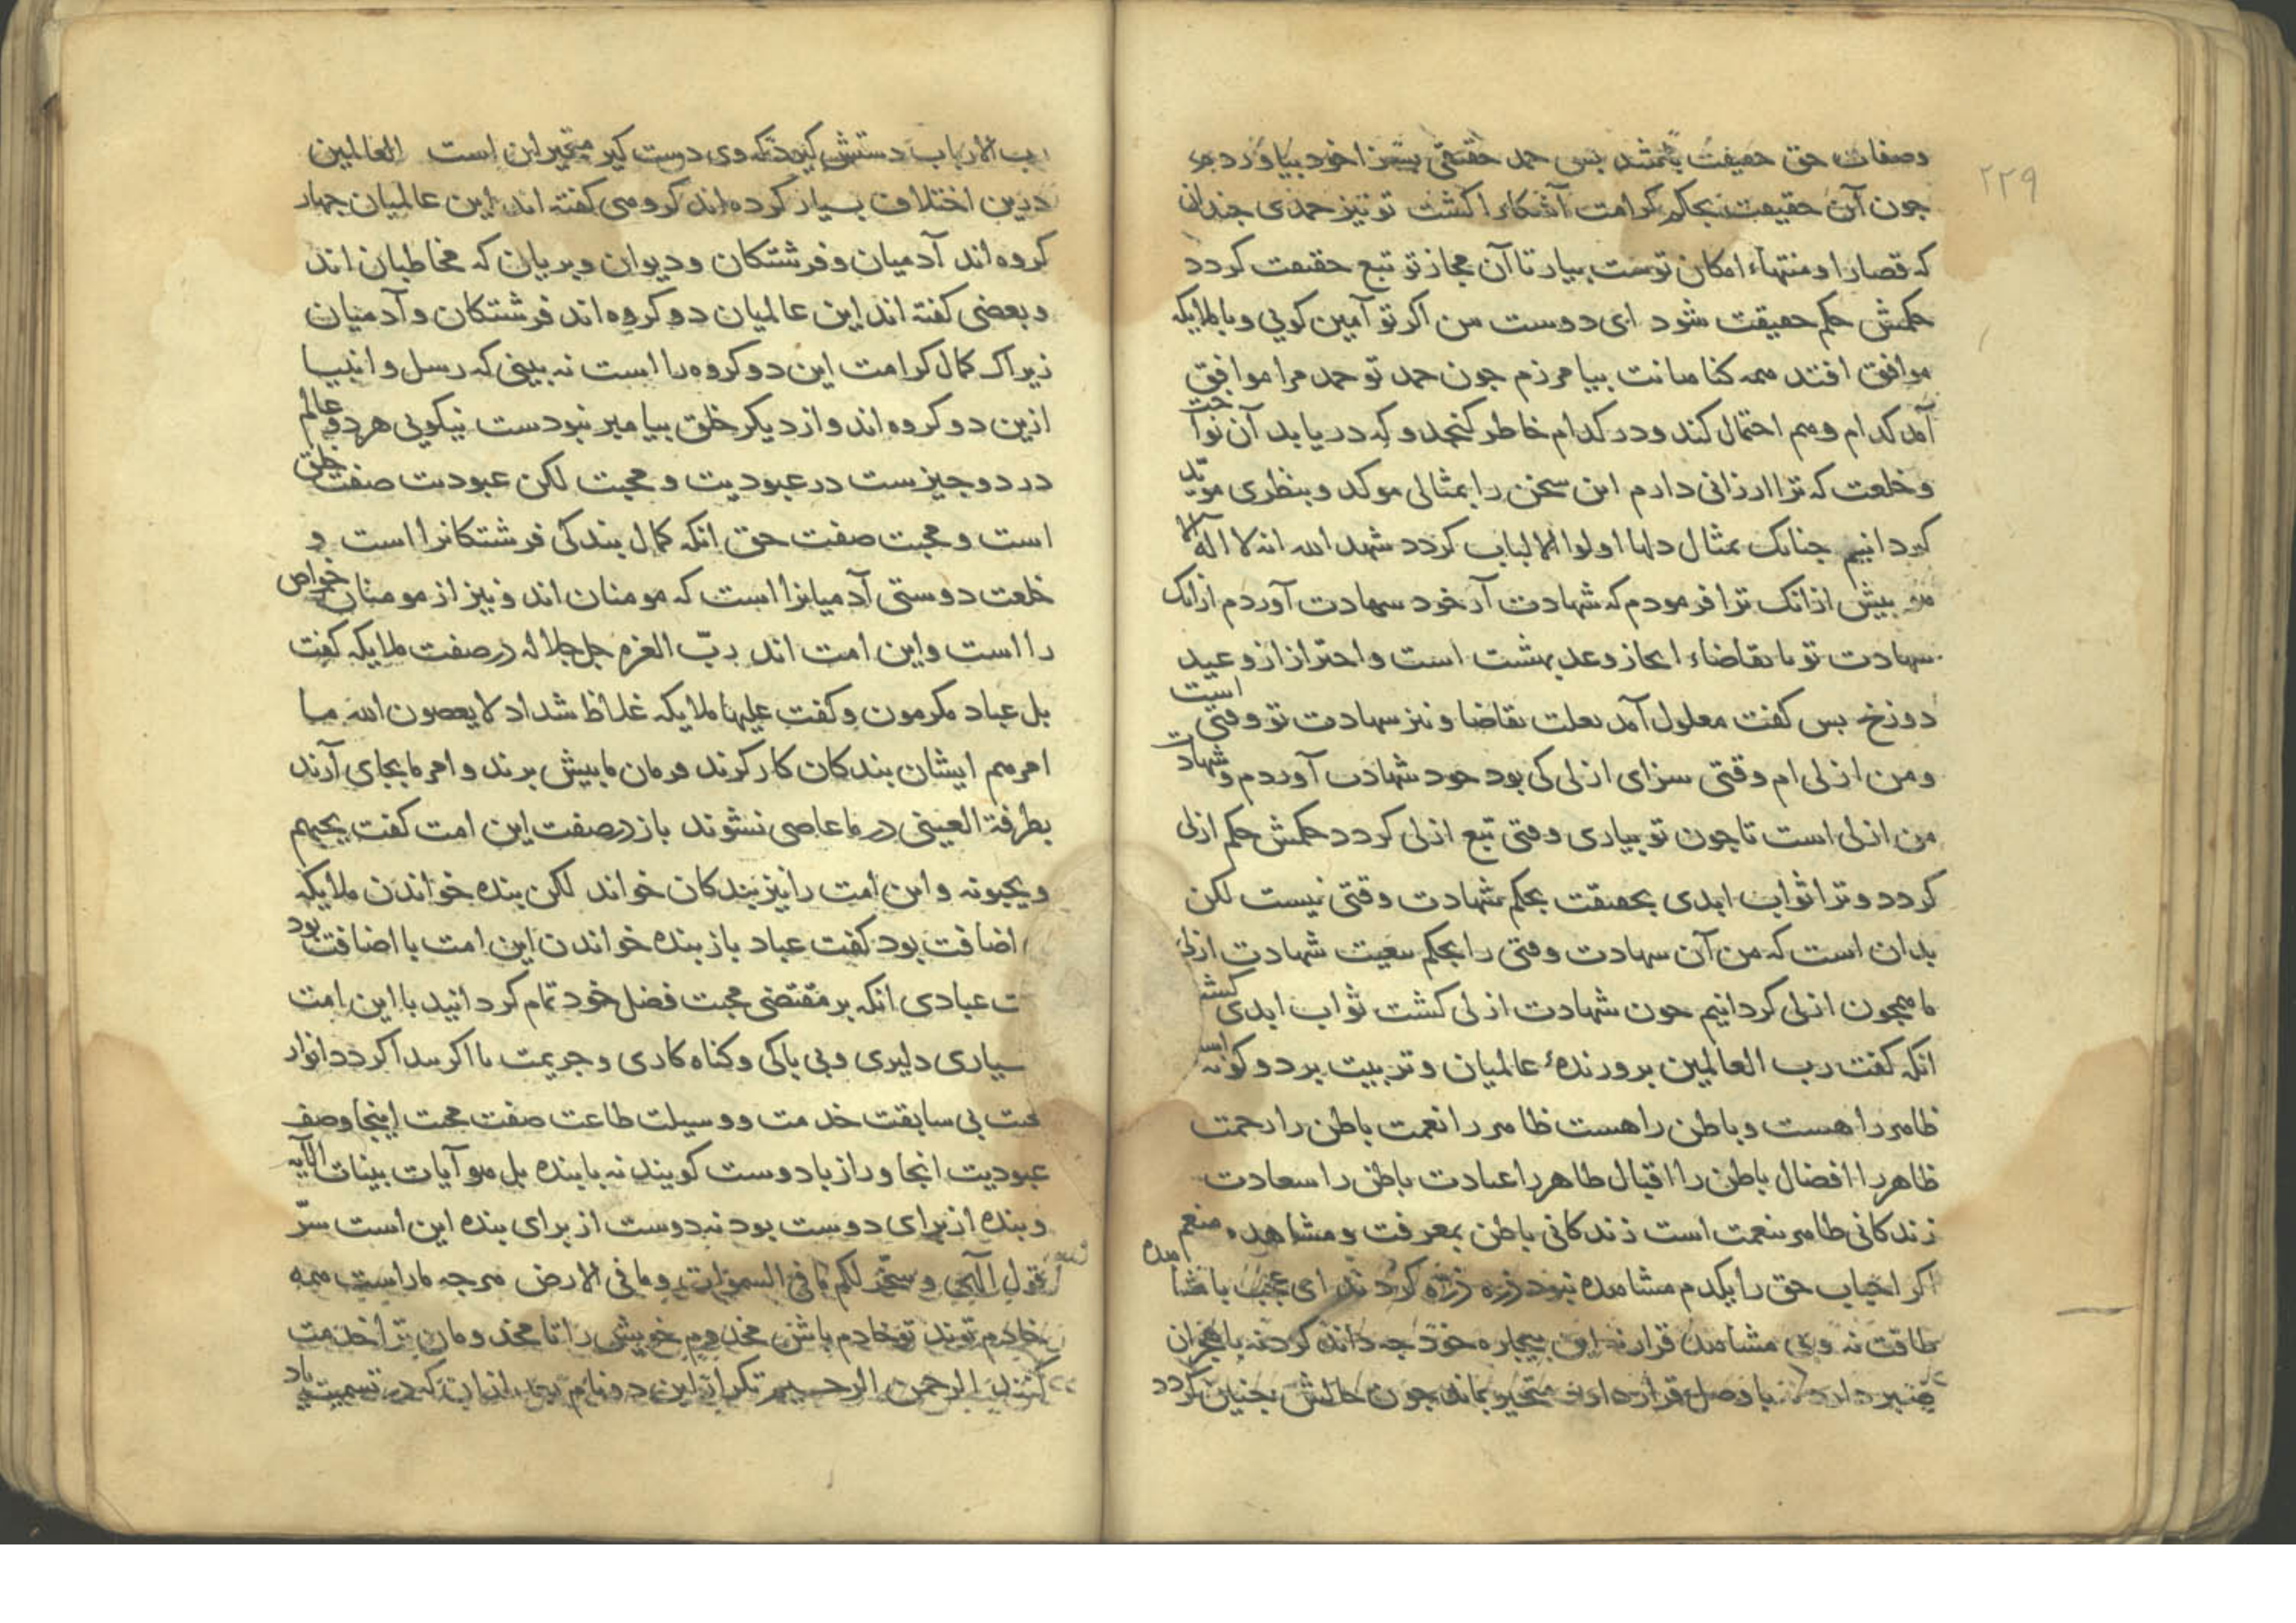 ۲۲۹
وصفات حق حقیقت باشد بس حمد حقیقی بیشتر اخود بیاورد
جون آن حقیقت بحکم کرامت آشکارا کشت تو نیز حمدی جندان
که قصارا ومنتهاء امکان توست بیار تا آن مجاز تو تبع حقیقت کردد
حکمش حکم حقیقت شود ای دوست من اکر تو آمین کویی وبا ملایکه
موافق افتد همه کناهانت بیامرزم جون حمد تو حمد مرا موافق
آمد کدام وهم احتمال کند ودر کدام خاطر کنجد وکه دریابد آن نواخت
وخلعت که ترا ارزانی دارم این سخن را بمثالی موکد وبنظری موید
کردانیم جنانک بمثال دلها اولوا الالباب کردد شهد الله انه لا اله الا
هو بیش ازانک ترا فرمودم که شهادت آر خود شهادت آوردم ازانک
شهادت تو با تقاضاء انجاز وعد بهشت است واحتراز از وعید
دوزخ بس کفت معلول آمد بعلت تقاضا ونیز شهادت تو وقتی است
ومن ازلی ام وقتی سزای ازلی کی بود خود شهادت آوردم وشهادت
من ازلی است تا جون تو بیاری وقتی تبع ازلی کردد حکمش حکم ازلی
کردد وترا ثواب ابدی بحقیقت بحکم شهادت وقتی نیست لکن
بدان است که من آن شهادت وقتی را بحکم تبعیت شهادت ازلی
ما همجون ازلی کردانیم جون شهادت ازلی کشت ثواب ابدی کشت
انکه کفت رب العالمین برورندهٔ عالمیان وتربیت بر دو کونه است
ظاهر را هست وباطن را هست ظاهر را نعمت باطن را رحمت
ظاهر را افضال باطن را اقبال ظاهر را عبادت باطن را سعادت
زندکانی ظاهر بنعمت است زندکانی باطن بمعرفت ومشاهده منعم
اکر احباب حق را یکدم مشاهده نبود ذره ذره کردند ای عجب با مشاهده
طاقت نه وبی مشاهده قرار نه این بیجاره خود جه داند کرد نه با هجران
صبر دارد نه با وصل قرار دارد متحیر بماند جون حالش بجنین کردد
رب الارباب دستش کیرد که وی دست کیر متحیران است العالمین
درین اختلاف بسیار کرده اند کروهی کفته اند این عالمیان جهار
کروه اند آدمیان وفرشتکان ودیوان وبریان که مخاطبان اند
وبعضی کفته اند این عالمیان دو کروه اند فرشتکان وآدمیان
زیراکه کمال کرامت این دو کروه را است نه بینی که رسل وانبیا
ازین دو کروه اند واز دیکر خلق بیامبر نبودست نیکویی هر دو عالم
در دو جیزست در عبودیت و محبت لکن عبودیت صفت خلق
است ومحبت صفت حق انکه کمال بندکی فرشتکانرا است و
خلعت دوستی آدمیانرا است که مومنان اند ونیز از مومنان خواص
را است واین امت اند ربّ العزم جل جلاله در صفت ملایکه کفت
بل عباد مکرمون وکفت علیها ملایکه غلاظ شداد لا یعصون الله ما
امرهم ایشان بندکان کار کرند فرمان ما بیش برند وامر ما بجای آرند
بطرفة العینی در ما عاصی نشوند باز در صفت این امت کفت یحبهم
ویحبونه واین امت را نیز بندکان خواند لکن بنده خواندن ملایکه
اضافت بود کفت عباد باز بنده خواندن این امت با اضافت بود
ت عبادی انکه بر مقتضی محبت فضل خود تمام کردانید با این امت
بسیاری دلیری وبی باکی وکناه کاری وجریمت ما اکر بیدا کردد انوار
محبت بی سابقت خدمت ووسیلت طاعت صفت محبت اینجا وصف
عبودیت انجا وراز با دوست کویند نه با بنده بل هو آیات بینات الآیه
وبنده از برای دوست بود نه دوست از برای بنده این است سرّ
قول الهی وسخّر لکم ما فی السموات وما فی الارض هر جه ماراست همه
خادم توند تو خادم باش مخدوم خویش را تا مخدومان ترا خدمت
کنند الرحمن الرحیم تکرار این دو نام بعد ازان که در تسمیت یاد